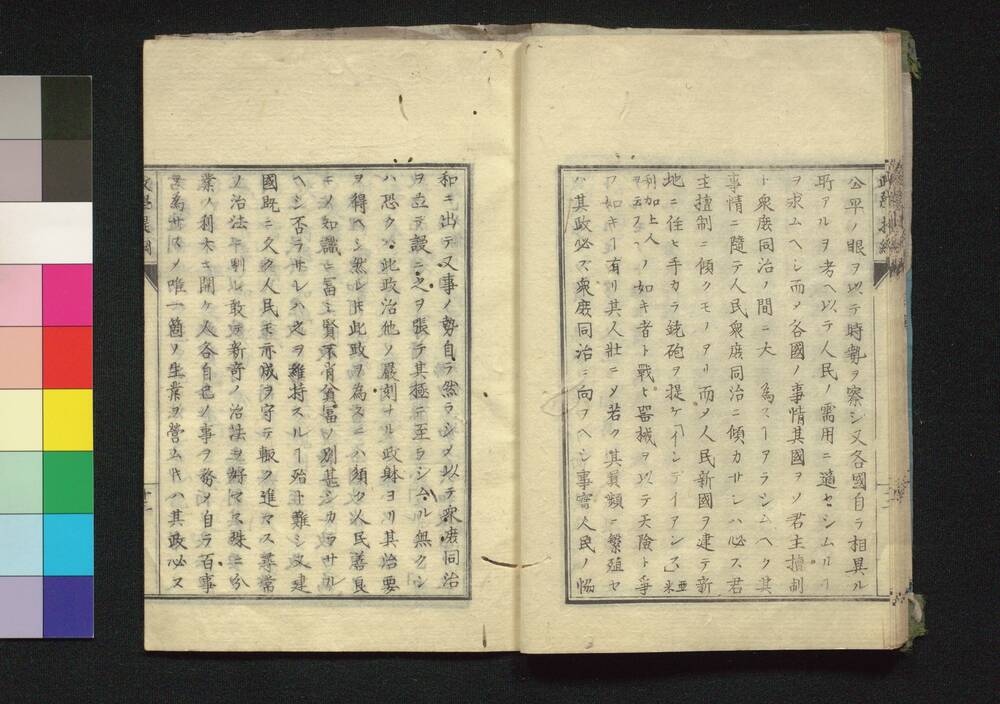 公平ノ眼ヲ以テ時勢ヲ察シ又各國自ラ相異ル
所アルヲ考ヘ以テ人民ノ需用ニ適セシムルヿ
ヲ求ムヘシ而メ各國ノ事情其國ヲソ君主擅制
ト衆庶同治ノ間ニ大 為スーアラシムヘク其
事情ニ隨テ人民衆庶同治ニ傾カサレハ必ス君
主擅制ニ傾クモノアリ而メ人民新國ヲ建テ新
地ニ住ヒ手カラ銃砲ヲ提ケ「インデイアン」亞米
利加土人ヲ云フノ如キ者ト戰ヒ器械ヲ以テ天險ト爭
フ如キヿ有リ其人壯ニメ若ク其異類ニ繁殖セ
ハ其政必ズ衆庶同治ニ向フヘシ事實人民ノ
和ニ出テ又事ノ勢自ラ然ラシメ以テ衆庶同治
ヲ立テ謾ニ之ヲ張テ其極ニ至ラシムル無クン
ハ恐クハ此政治他ノ嚴刻ナル政躰ヨリ其治要
ヲ得ヘシ然レ𪜈此政ヲ為スニハ須ク人民善良
ニノ知識ニ富ミ賢不肖貧富ノ別甚シカラサル
ヘシ否ラサレハ之ヲ維持スルヿ殆ト難シ又建
國既ニ久ク人民モ亦成ヲ守テ輙ク進マス尋常
ノ治法ニ馴レ敢テ新奇ノ治法ヲ好マス殊ニ分
業ノ利大ニ開ケ人各自己ノ事ヲ務メ自ラ百事
為サスメ唯一箇ノ生業ヲ營ム𪜈ハ其政必ス